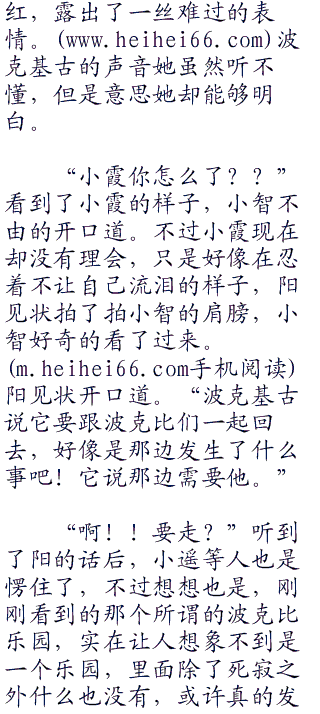 红，露出了一丝难过的表
情。(www.heihei66.com)波
克基古的声音她虽然听不
懂，但是意思她却能够明
白。
“小霞你怎么了？？”
看到了小霞的样子，小智不
由的开口道。不过小霞现在
却没有理会，只是好像在忍
着不让自己流泪的样子，阳
见状拍了拍小智的肩膀，小
智好奇的看了过来。
(m.heihei66.com手机阅读)
阳见状开口道。“波克基古
说它要跟波克比们一起回
去，好像是那边发生了什么
事吧！它说那边需要他。”
“啊！！要走？”听到
了阳的话后，小遥等人也是
愣住了，不过想想也是，刚
刚看到的那个所谓的波克比
乐园，实在让人想象不到是
一个乐园，里面除了死寂之
外什么也没有，或许真的发